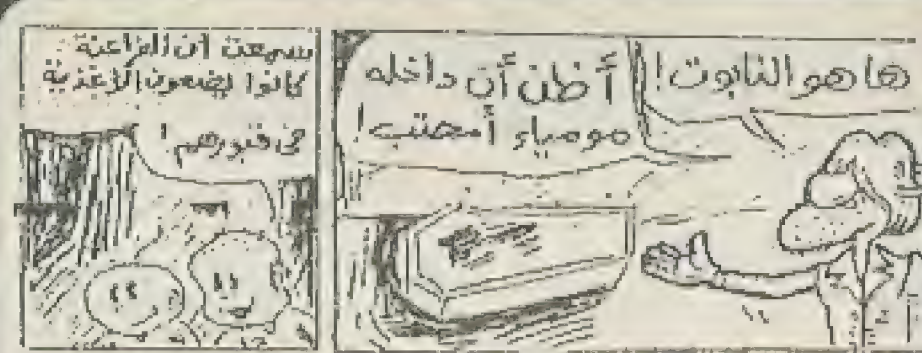 ها هو التابوت!
أظن أن داخله
مومياء أمحتب!
سمعت أن الفراعنة
كانوا يضعون الأغذية
في قبورهم!